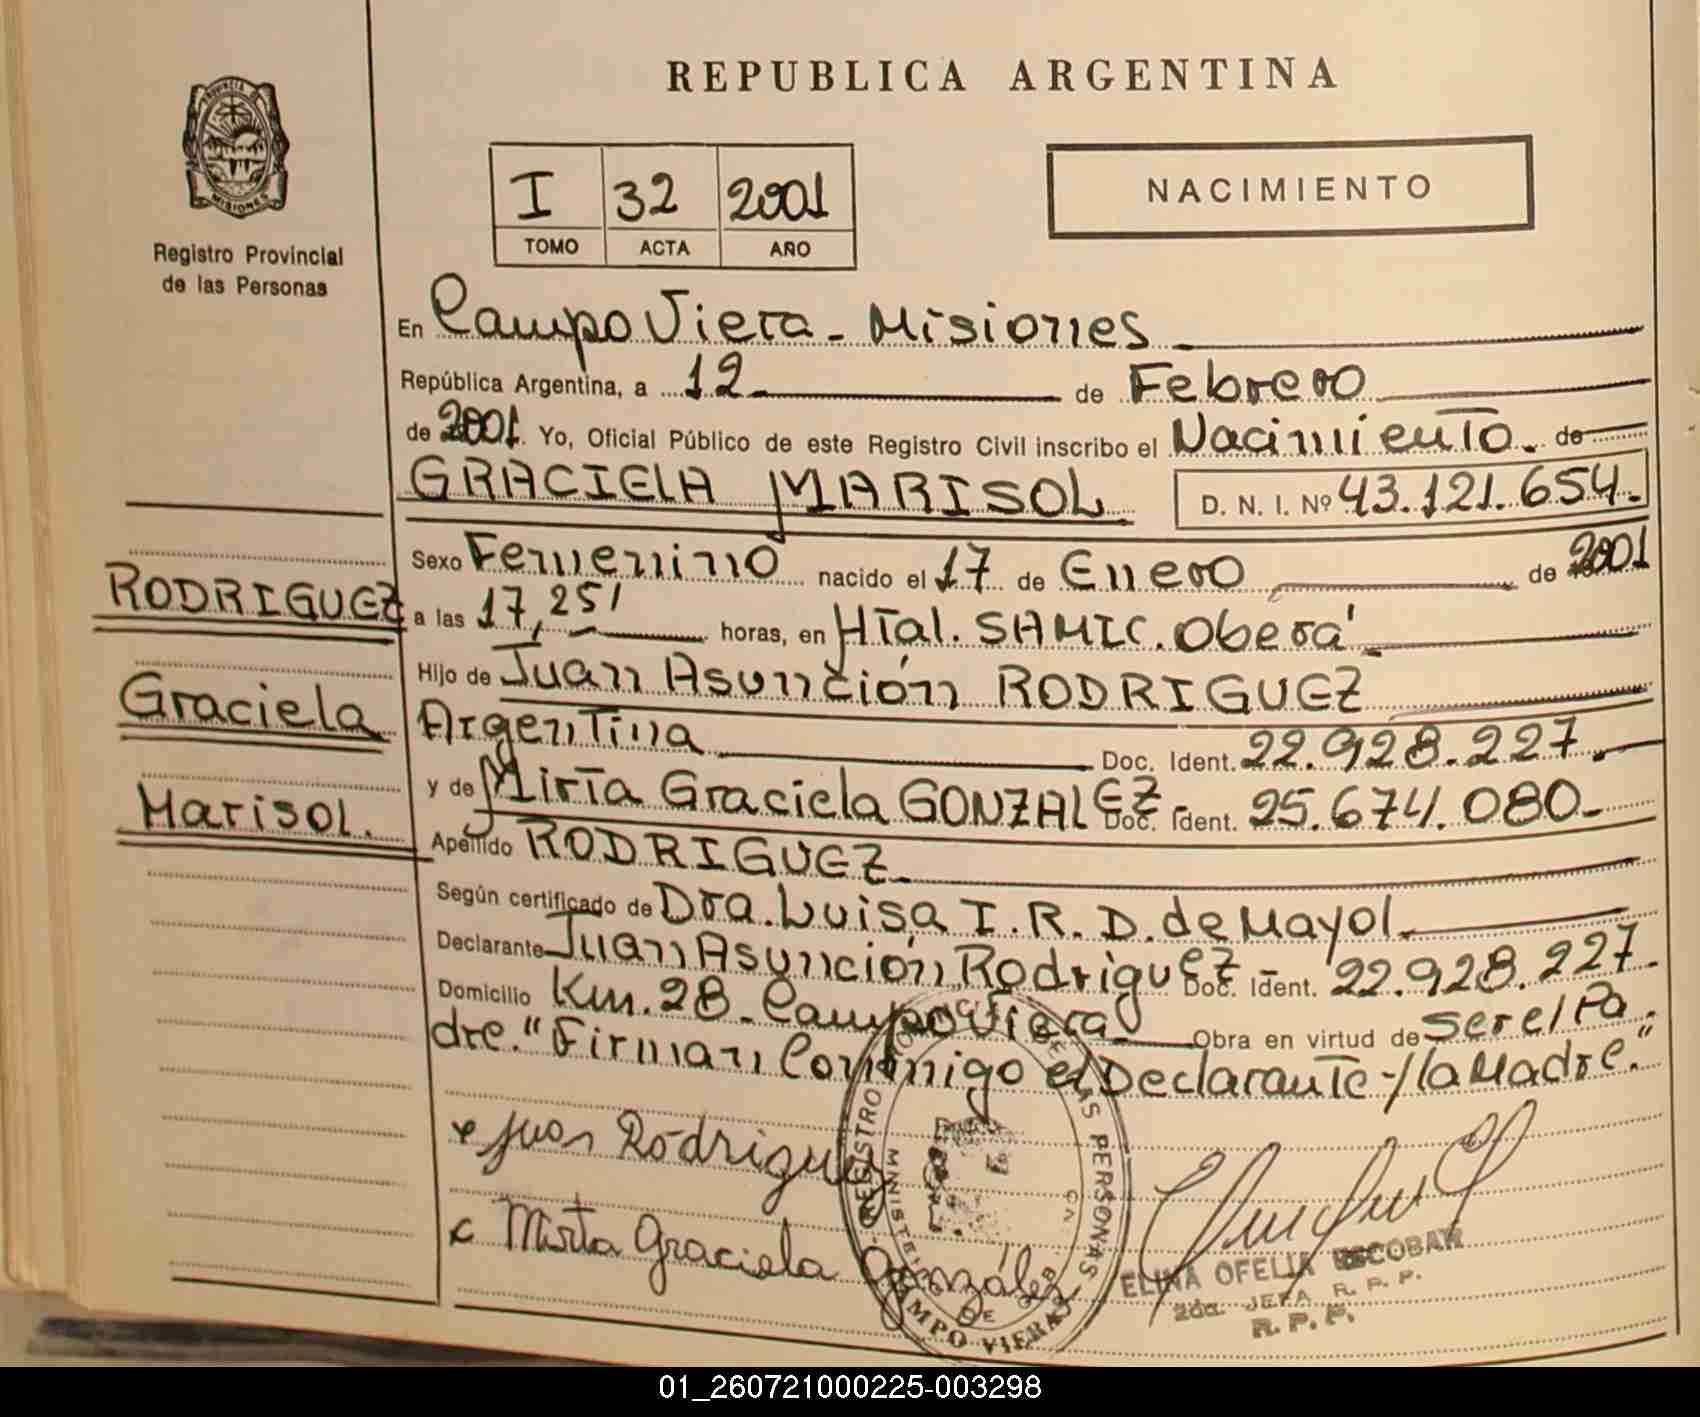 REPUBLICA ARGENTINA
PROVINCIA DE
MISIONES
Registro Provincial
de las Personas
I 32 2001
TOMO ACTA AÑO
NACIMIENTO
En Campo Viera - Misiones
República Argentina, a 12 de Febrero
de 2001. Yo, Oficial Público de este Registro Civil inscribo el Nacimiento. de
GRACIELA MARISOL D. N. I. Nº 43.121.654.
Sexo Femenino nacido el 17 de Enero de 2001
RODRIGUEZ
a las 17,25' horas, en Htal. SAMIC. Oberá
Hijo de Juan Asunción RODRIGUEZ
Graciela
Argentina Doc. Ident. 22.928.227.
y de Mirta Graciela GONZALEZ Doc. Ident. 25.674.080-
Marisol.
Apellido RODRIGUEZ
Según certificado de Dra. Luisa I. R. D. de Mayol.
Declarante Juan Asunción Rodriguez Doc. Ident. 22.928.227.
Domicilio Km. 28 - Campo Viera Obra en virtud de ser el Pa
dre. "Firman Conmigo el Declarante -/la Madre."
Juan Rodriguez
Mirta Graciela González
REGISTRO PROVINCIAL DE LAS PERSONAS
MINISTERIO DE GOB
CAMPO VIERAS
ELINA OFELIA ESCOBAR
2da. JEFA R. P. P.
R. P. P.
01_260721000225-003298